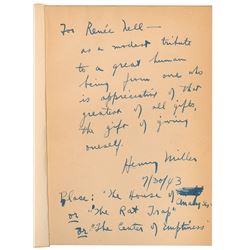 For Renée Nell —
as a modest tribute
to a great human
being from one who
is appreciative of that
greatest of all gifts,
the gift of giving
oneself.
Henry Miller
7/30/43
Place: "The House of
or "The Rat Trap"
or "The Center of Emptiness